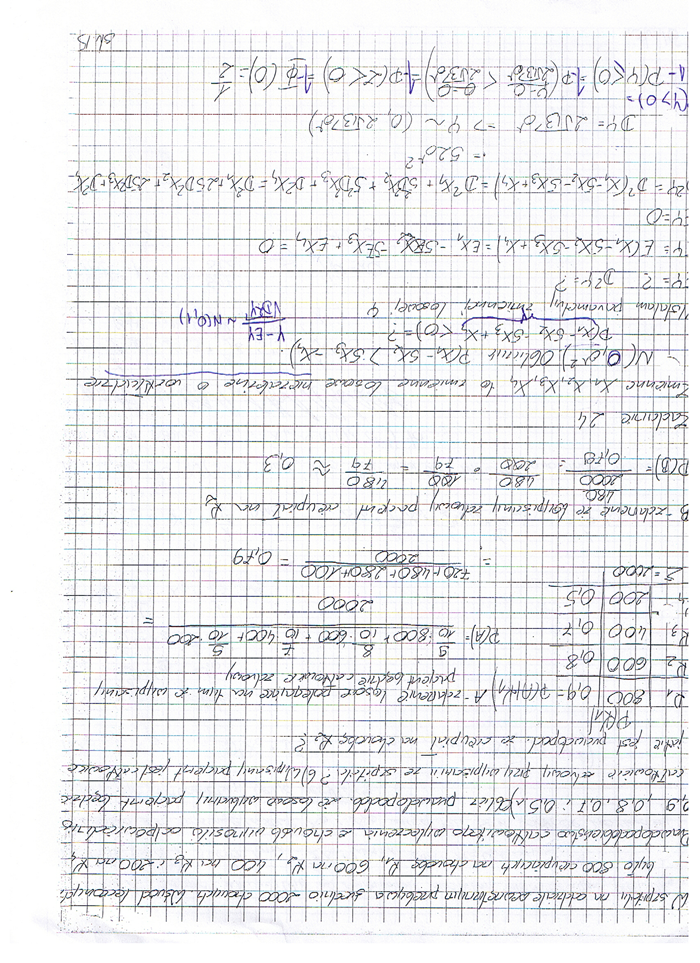 W szpitalu na oddziale wewnętrznym przebywa średnio 2000 chorych. Wśród leczonych
było 800 cierpiących na chorobę K₁, 600 na K₂, 400 na K₃ i 200 na K₄
Prawdopodobieństwo całkowitego wyleczenia z chorób wynosiło odpowiednio
0,9, 0,8, 0,7 i 0,5. Oblicz prawdopodob. że losowo wybrany pacjent będzie
całkowicie zdrowy przy wypisaniu ze szpitala? b) wypisany pacjent jest całkowicie
jakie jest prawdopod. że cierpiał na chorobę K₂?
P(K₁)
K₁ 800 0,9 = P(A|K₁) A - zdarzenie losowe polegające na tym że wypisany
pacjent będzie całkowicie zdrowy
K₂ 600 0,8
K₃ 400 0,7 P(A) = (9/10 · 800 + 8/10 · 600 + 7/10 · 400 + 5/10 · 200) / 2000 =
K₄ 200 0,5
Σ = 2000 = (720 + 480 + 280 + 100) / 2000 = 0,79
B - zdarzenie że wypisany zdrowy pacjent cierpiał na K₂
P(B) = (480/2000) / 0,79 = 480/2000 · 100/79 = 480/79 ≈ 0,3
Zadanie 24
Zmienne X₁, X₂, X₃, X₄ to zmienne losowe niezależne o rozkładzie
~ N(0, σ²) Obliczit P(X₁ - 5X₂ > 5X₃ - X₄).
P(X₁ - 5X₂ - 5X₃ + X₄ < 0) = ?
Y
Ustalam parametry zmiennej losowej Y
(Y - EY) / √D²Y ~ N(0,1)
EY = ? D²Y = ?
EY = E(X₁ - 5X₂ - 5X₃ + X₄) = EX₁ - 5EX₂ - 5EX₃ + EX₄ = 0
EY = 0
D²Y = D²(X₁ - 5X₂ - 5X₃ + X₄) = D²X₁ + 5²D²X₂ + 5²D²X₃ + D²X₄ = D²X₁ + 25D²X₂ + 25D²X₃ + D²X₄
= 52σ²
DY = 2√13σ => Y ~ (0, 2√13σ)
P(Y > 0) =
1 - P(Y < 0) = 1 - P((Y-0)/(2√13σ) < (0-0)/(2√13σ)) = 1 - P(Z < 0) = 1 - Φ(0) = 1/2